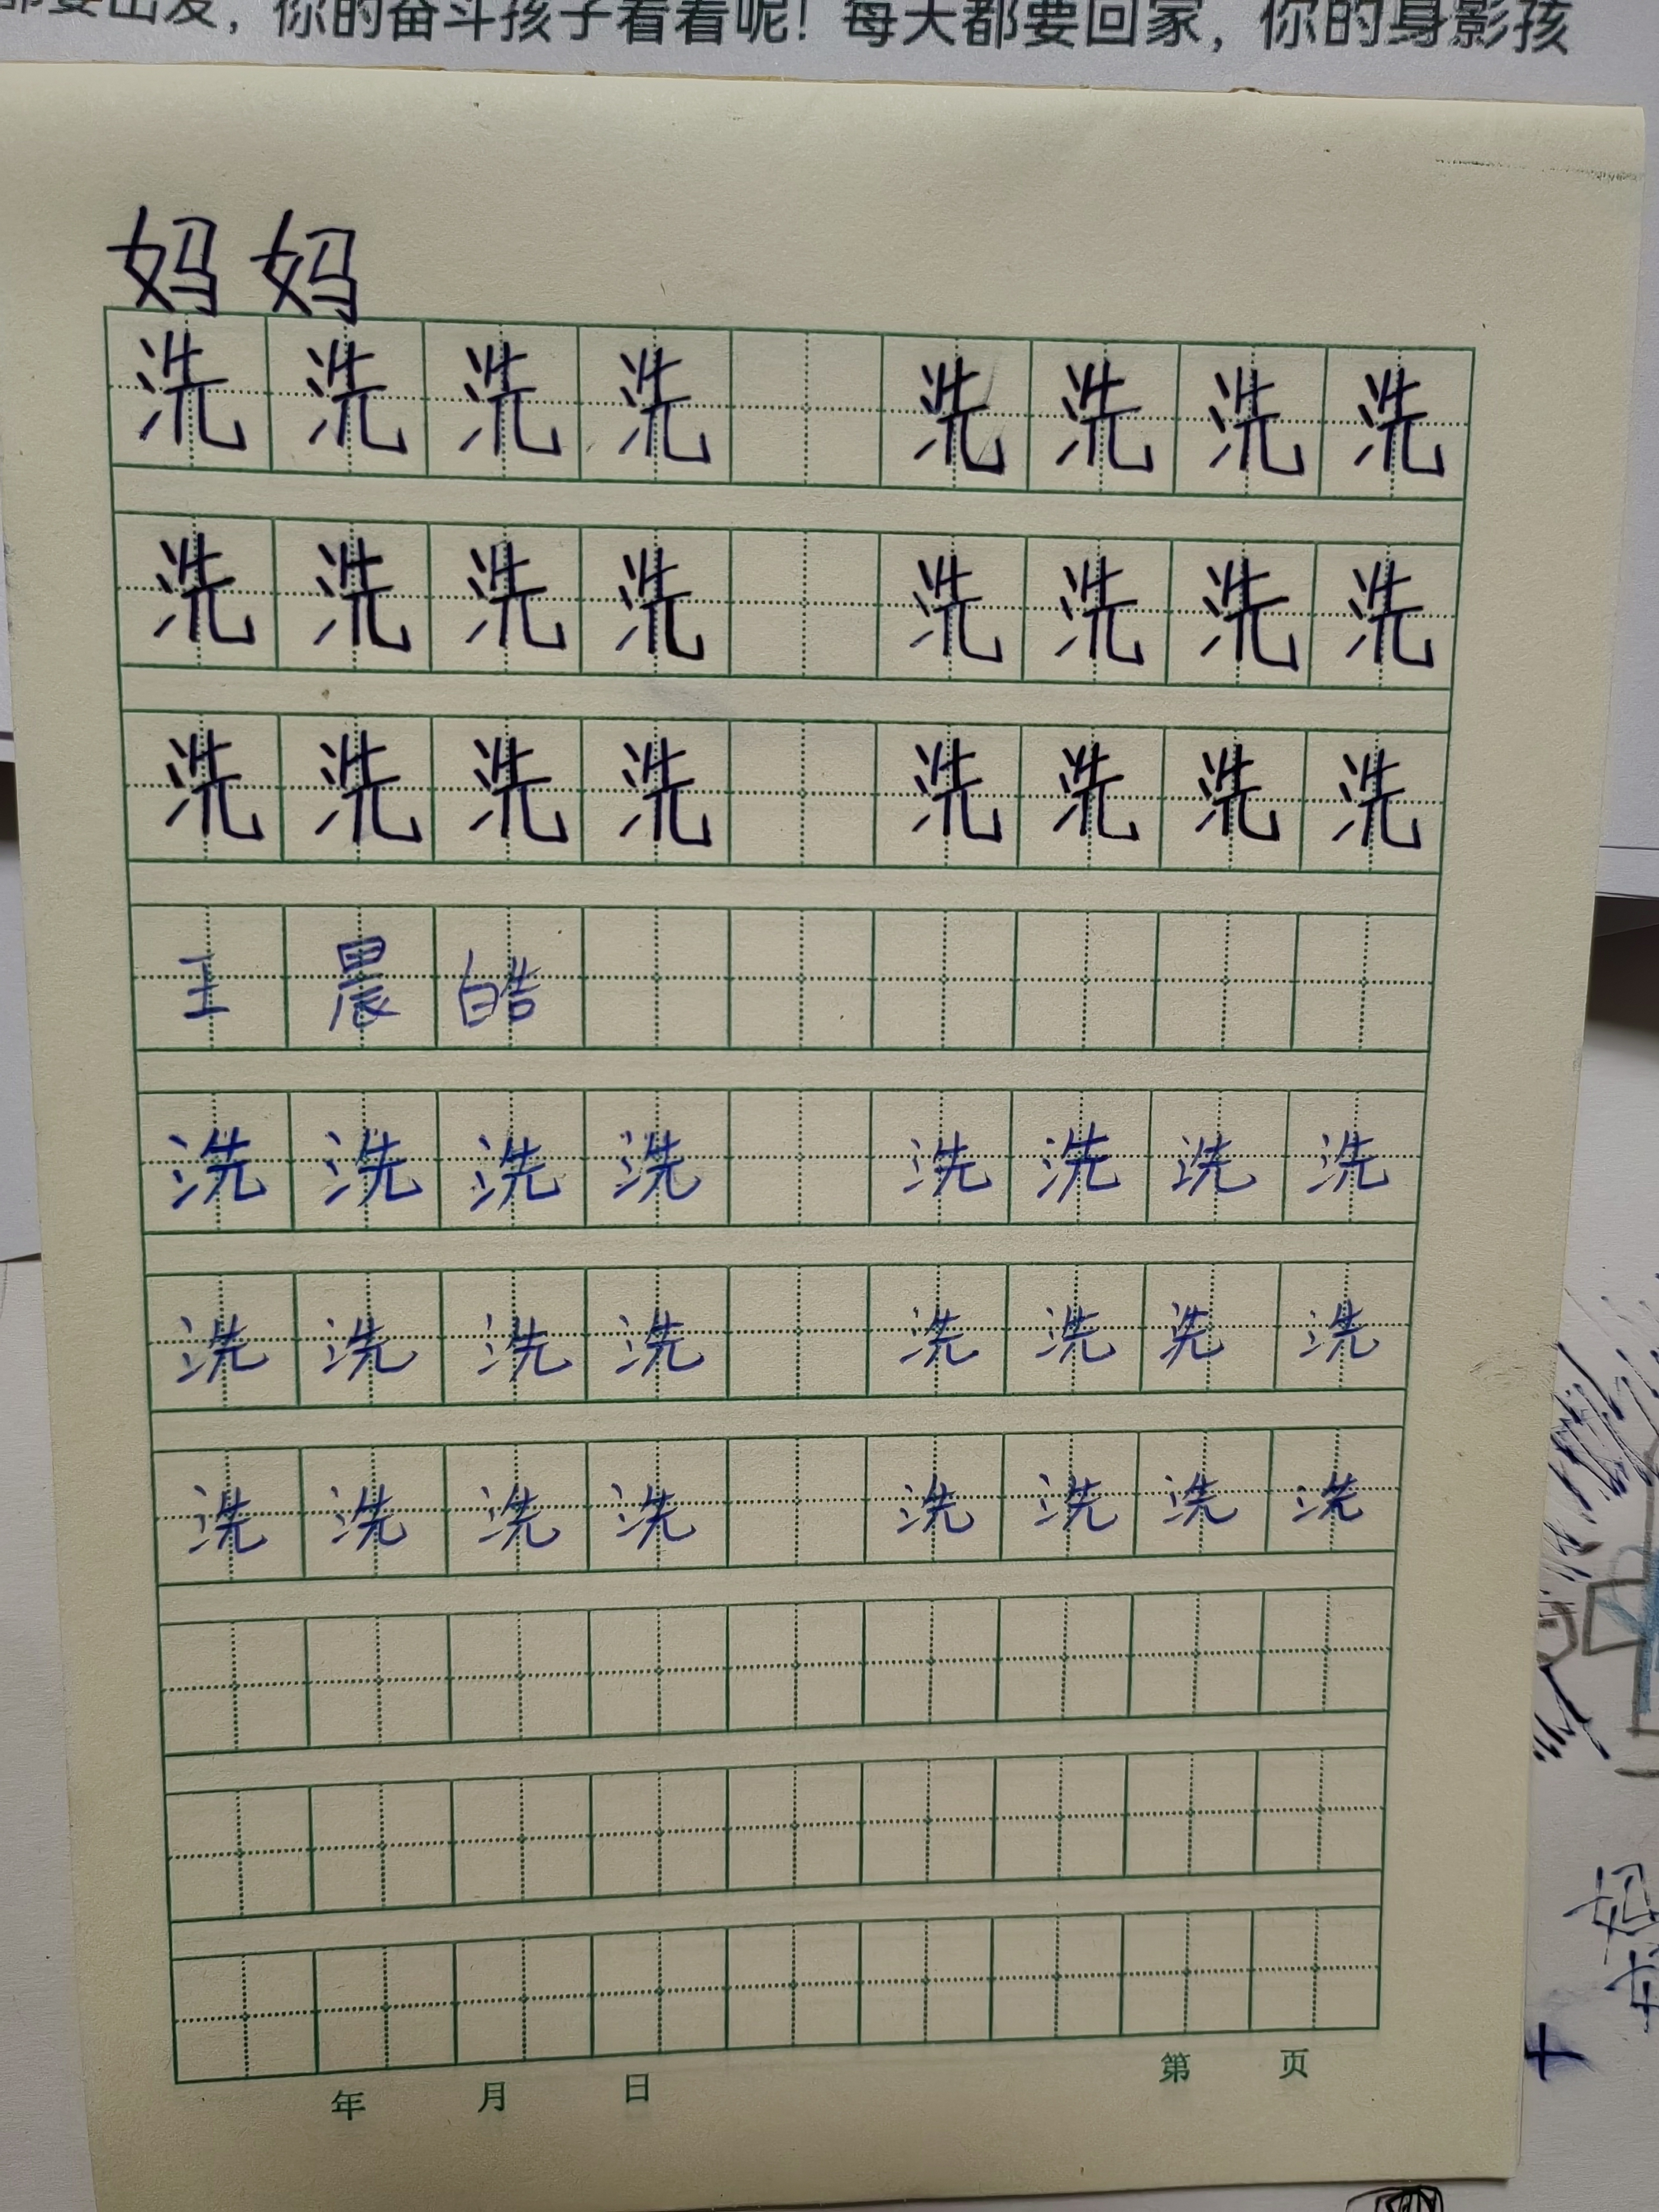 都要出发，你的奋斗孩子看着呢！每天都要回家，你的身影孩
妈妈
洗洗洗洗 洗洗洗洗
洗洗洗洗 洗洗洗洗
洗洗洗洗 洗洗洗洗
王晨皓
洗洗洗洗 洗洗洗洗
洗洗洗洗 洗洗洗洗
洗洗洗洗 洗洗洗洗
年 月 日 第 页